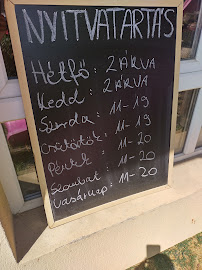 NYITVATARTÁS
Hétfő: ZÁRVA
Kedd: ZÁRVA
Szerda: 11-19
Csütörtök: 11-19
Péntek: 11-20
Szombat: 11-20
Vasárnap: 11-20